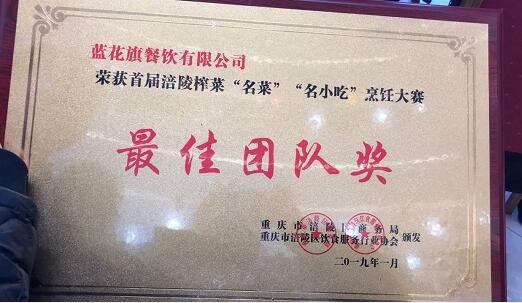 蓝花旗餐饮有限公司
荣获首届涪陵榨菜“名菜”“名小吃”烹饪大赛
最佳团队奖
重庆市涪陵区商务局
重庆市涪陵区饮食服务行业协会 颁发
二0一九年一月